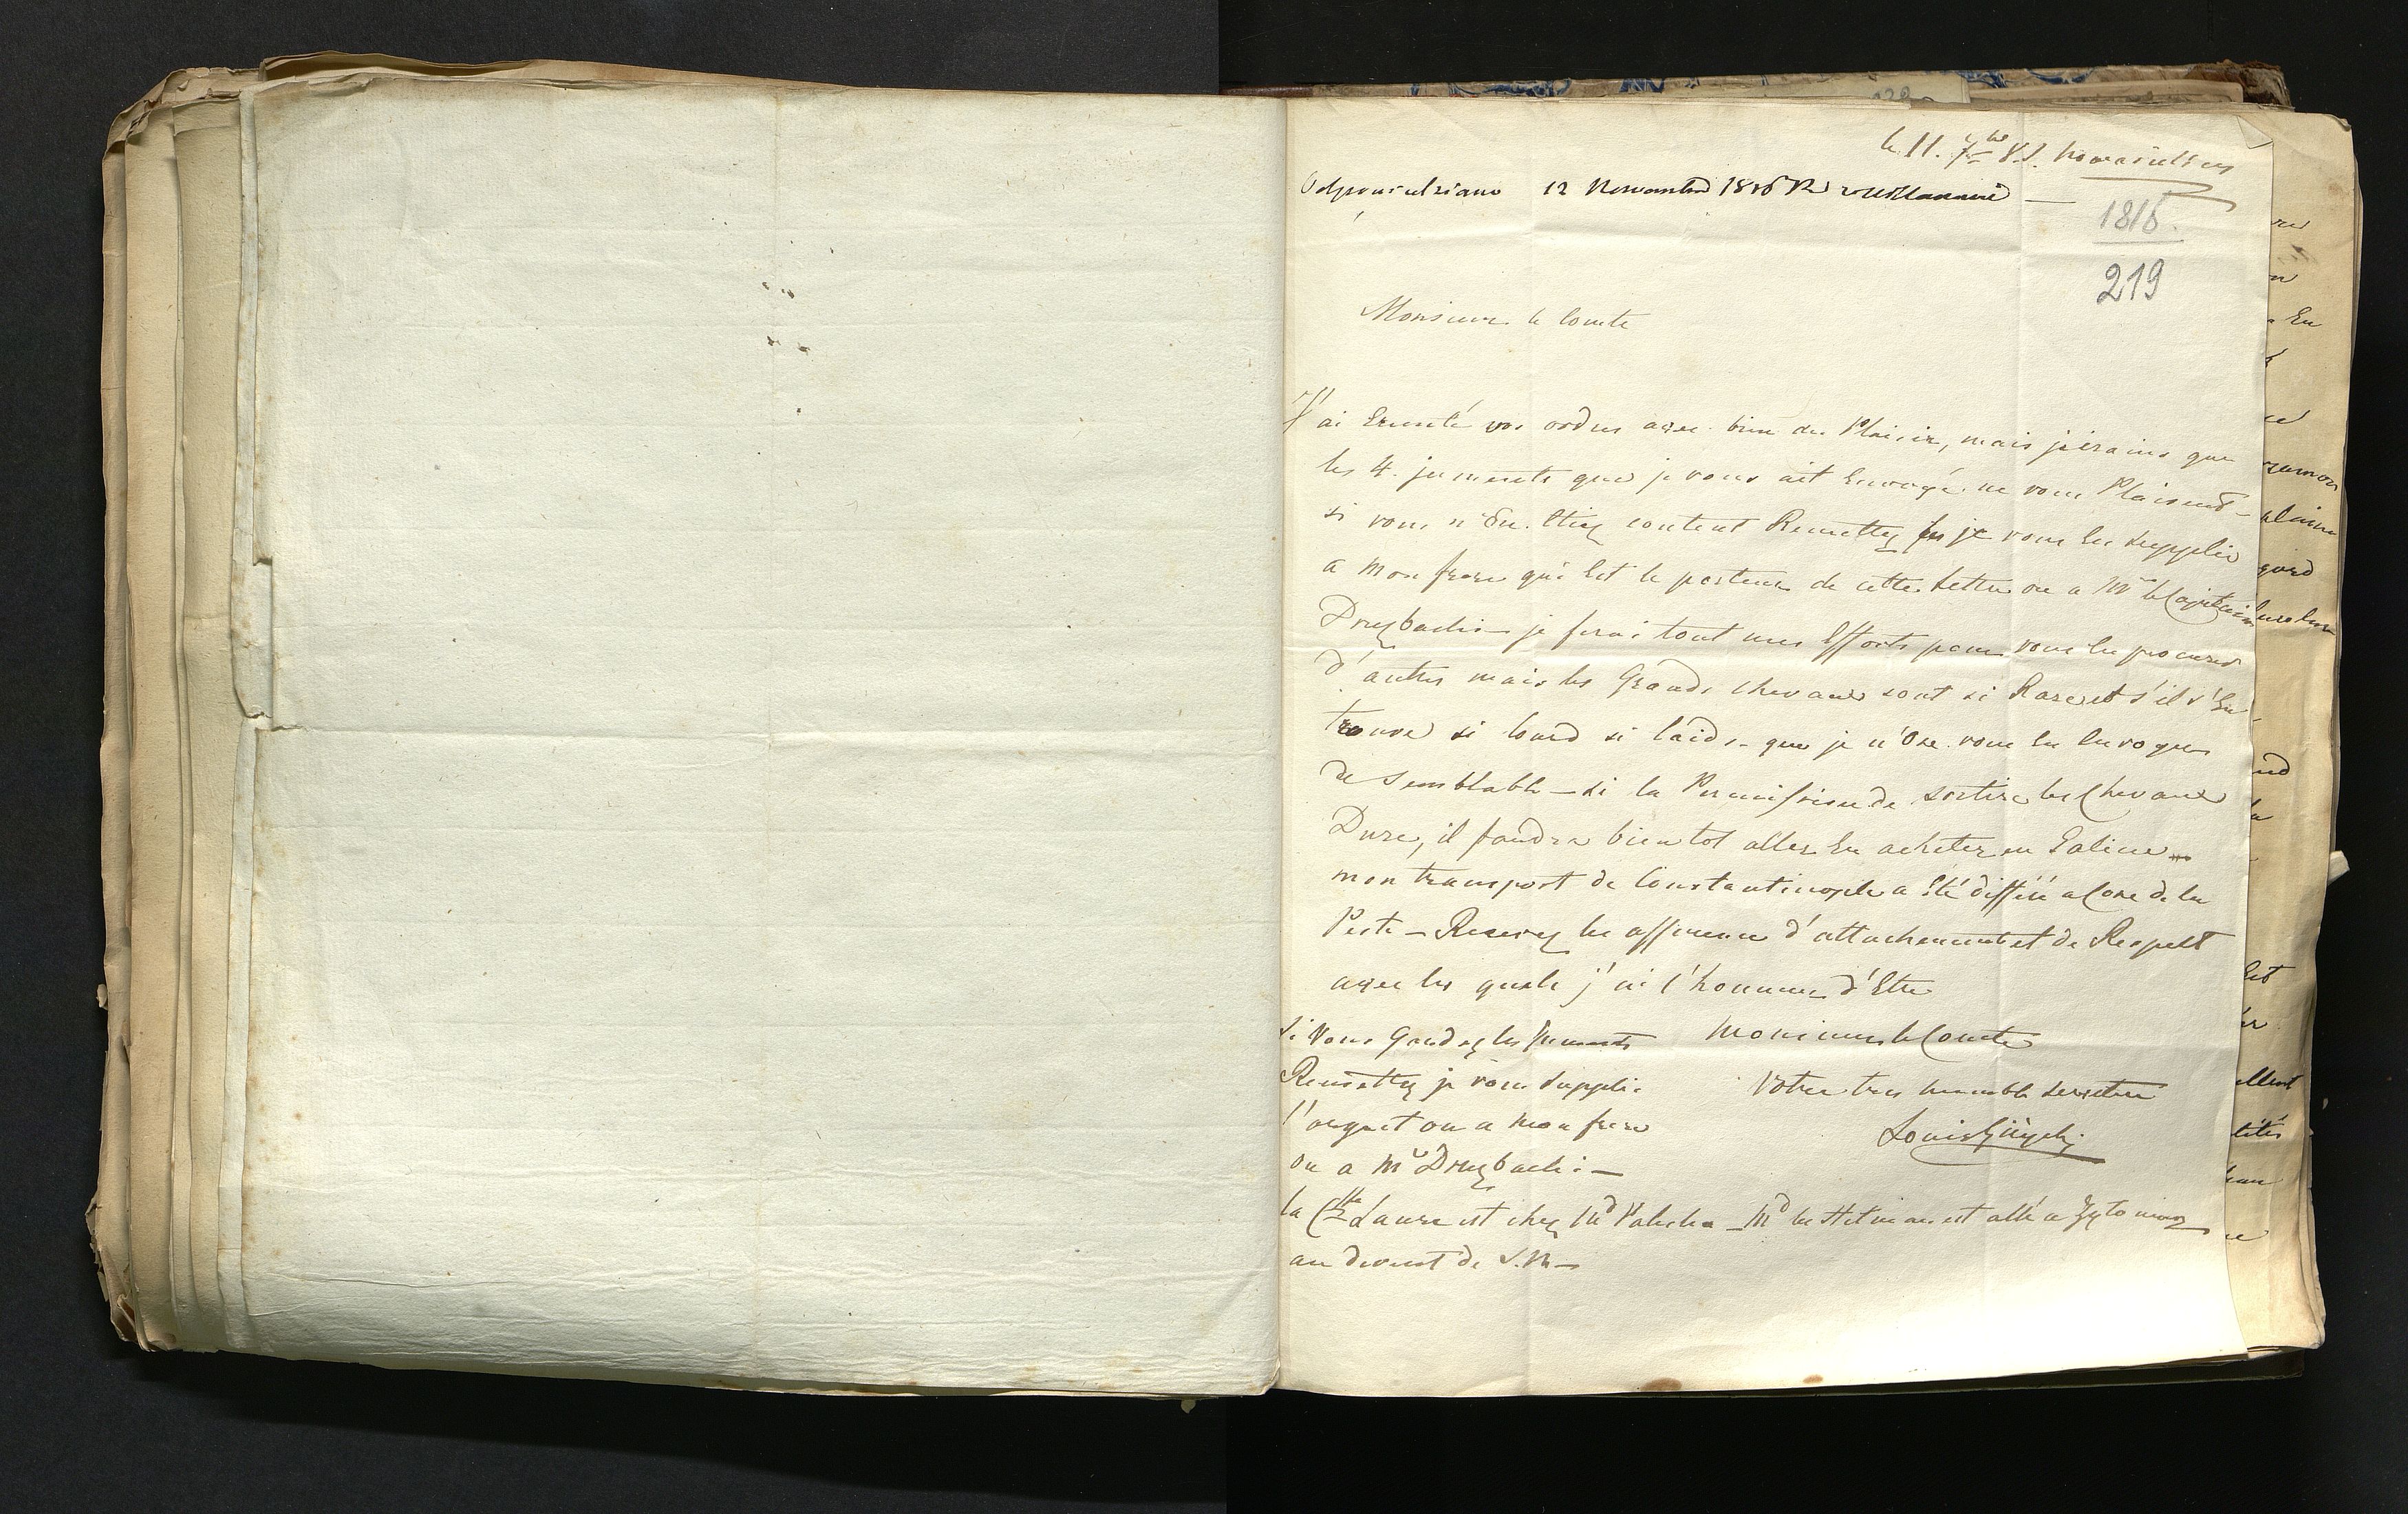 le 11. 7bre V.S.
Odpowiedziano 12 Novembra 1816 R
1816.
219
Monsieur le Comte
J'ai Executé vos ordres avec bien du Plaisir, mais je crains que
les 4. juments que je vous ait Envoyé ne vous Plaisent –
si vous n'En Etiez content Remettez les je vous En supplie
a mon frere qui Est le porteur de cette Lettre ou a Mr le Capitaine
Druzbacki – je ferai tout mes Efforts pour vous En procurer
d'autres mais les Grands chevaux sont si Rare et s'il s'En
trouve si lourd si laids – que je n'Ose vous En Envoyer
de Semblable – si la Permission de sortire les Chevaux
Dure, il faudra bientot aller En acheter en Galicie –
mon transport de Constantinople a Eté differé a Cause de la
Peste – Recevez les assurence d'attachement et de Respect
avec les quels j'ai l'honneur d'Etre
Monsieur le Comte
Votre tres humble serviteur
Louis
si Vous Gardez les Juments
Remettez je vous supplie
l'argent ou a mon frere
ou a Mr Druzbacki –
la Ctsse Laure est chez Md – Md la Hetman est allé a Zytomirz
au devant de S.M –